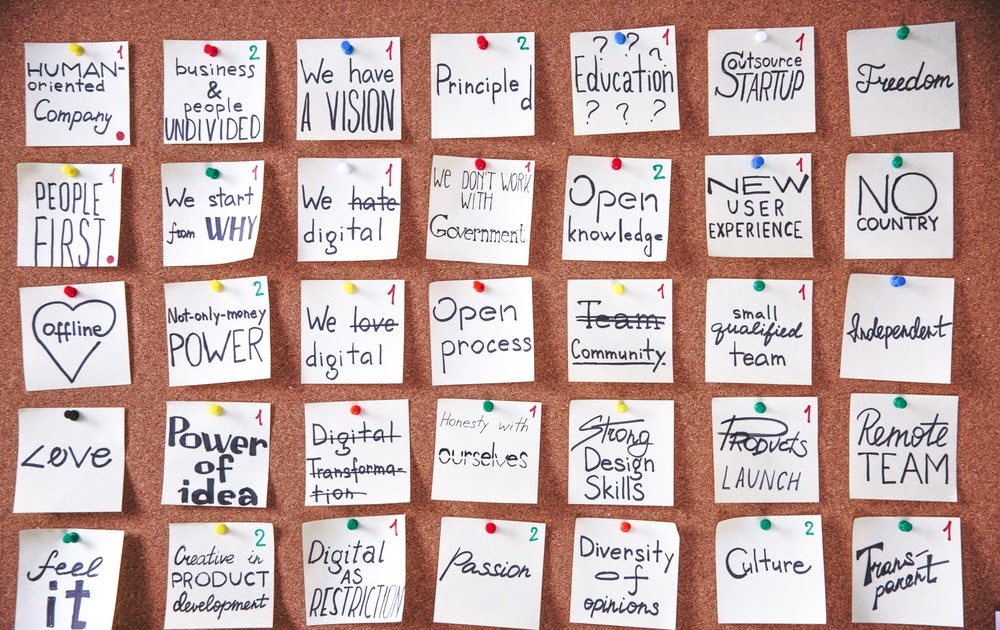 1
HUMAN-
oriented
Company
2
business
&
people
UNDIVIDED
1
We have
A VISION
2
Principled
1
? ? ?
Education
? ? ?
1
Outsource
STARTUP
Freedom
1
PEOPLE
FIRST
1
We start
from WHY
1
We hate
digital
1
We DON'T WORK
WITH
Government
2
Open
knowledge
1
NEW
USER
EXPERIENCE
NO
COUNTRY
offline
2
Not-only-money
POWER
1
We love
digital
Open
process
1
Team
Community
1
small
qualified
team
Independent
LOVE
1
Power
of
idea
Digital
Transforma-
tion
1
Honesty with
ourselves
Strong
Design
Skills
1
PRODUCTS
LAUNCH
Remote
TEAM
feel
it
2
Creative in
PRODUCT
development
1
Digital
AS
RESTRICTION
2
Passion
Diversity
of
opinions
2
Culture
1
Trans-
parent